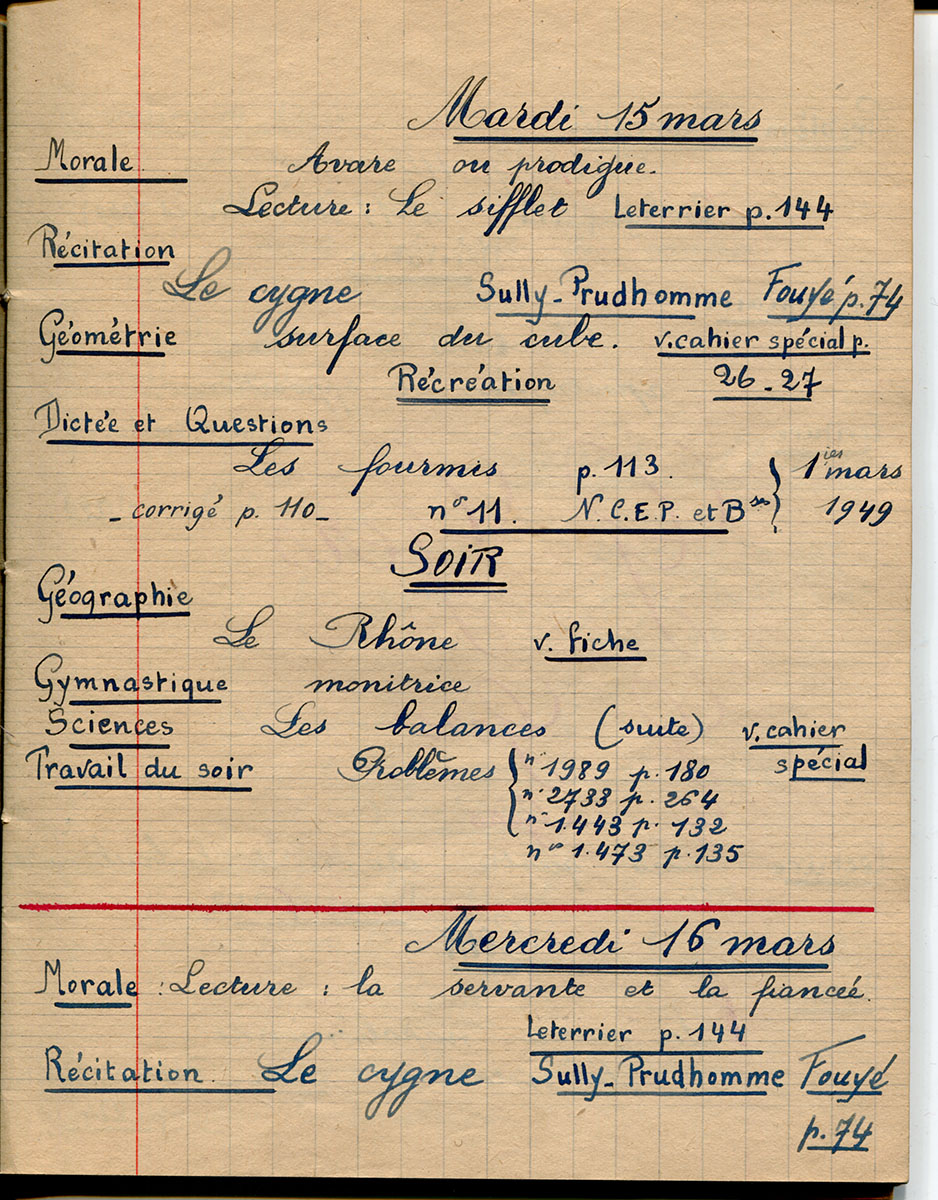 Mardi 15 mars
Morale Avare ou prodigue.
Lecture : Le sifflet Leterrier p. 144
Récitation
Le cygne Sully-Prudhomme Fouyé p. 74
Géométrie surface du cube. v. cahier spécial p.
Récréation 26-27
Dictée et Questions
Les fourmis p. 113. } 1ier mars
- corrigé p. 110 - n° 11. N.C.E.P. et Bses } 1949
SOIR
Géographie
Le Rhône v. fiche
Gymnastique monitrice
Sciences Les balances (suite) v. cahier
Travail du soir Problèmes { n° 1989 p. 180 spécial
n° 2733 p. 264
n° 1.443 p. 132
n° 1.473 p. 135
Mercredi 16 mars
Morale : Lecture : la servante et la fiancée.
Leterrier p. 144
Récitation Le cygne Sully-Prudhomme Fouyé
p. 74